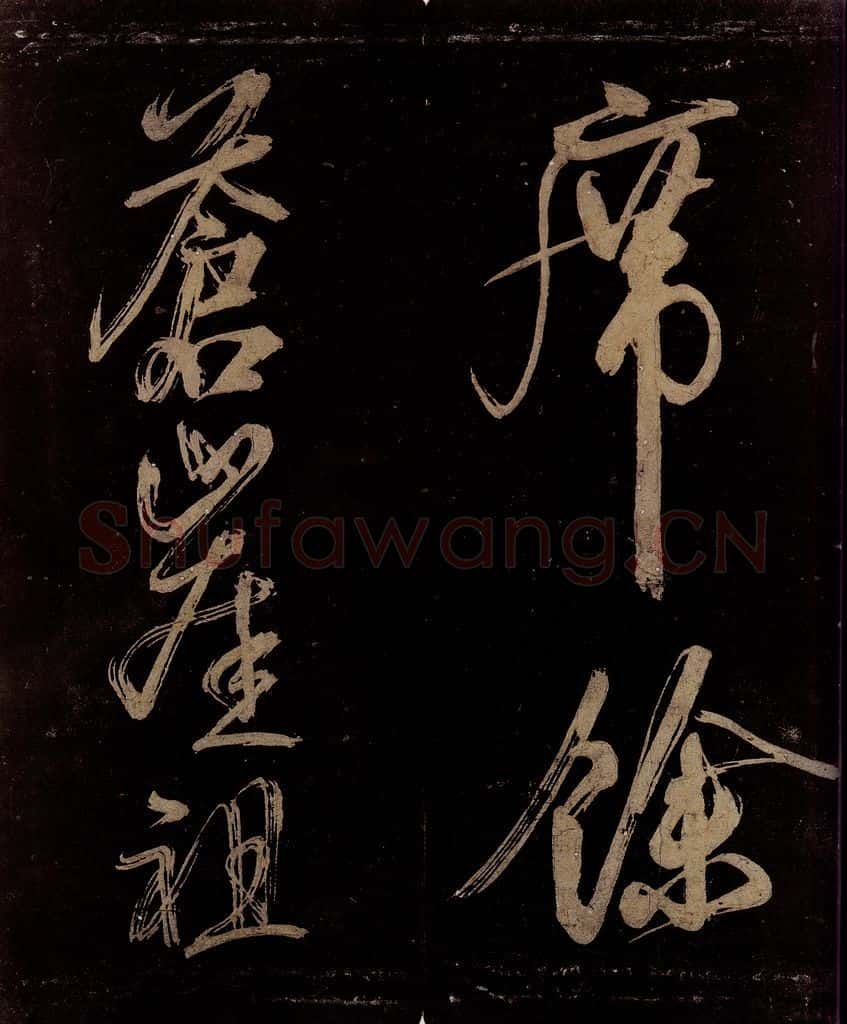 席餘
蒼崖祖
Shufawang.CN